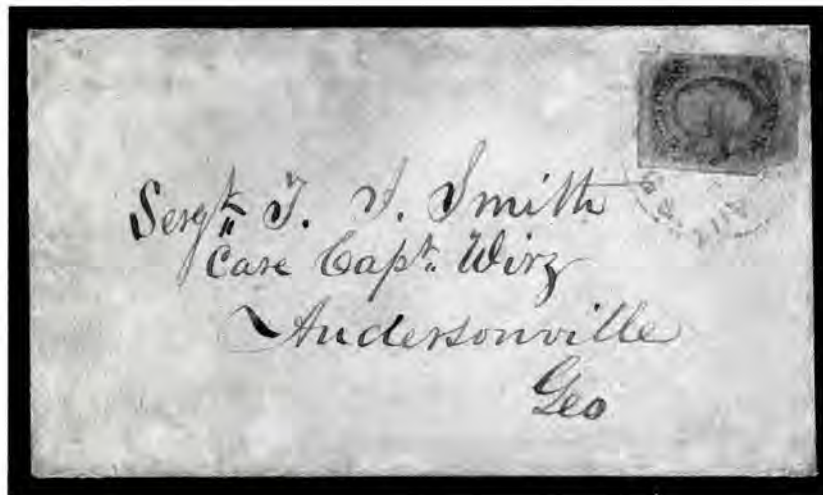 Sergt. T. J. Smith
Care Capt. Wirz
Andersonville
Geo